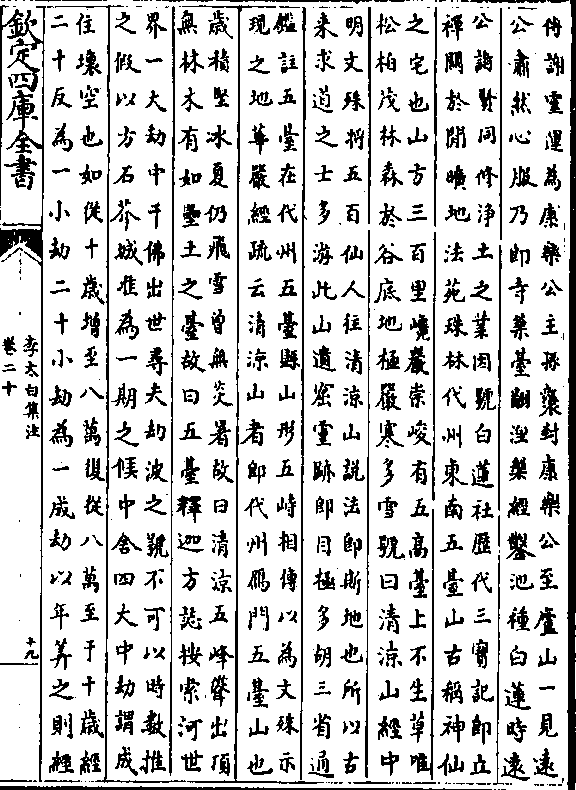 傳謝靈運為康樂公主孫襲封康樂公至廬山一見遠
公肅然心服乃即寺築臺翻涅槃經鑿池種白蓮時遠
公諸賢同修淨土之業因號白蓮社歴代三寳記即立
禪關於閒曠地法苑珠林代州東南五臺山古稱神仙
之宅也山方三百里巉巖崇峻有五高臺上不生草唯
松柏茂林森於谷底地極嚴寒多雪號曰清涼山經中
明文殊将五百仙人往清涼山說法即斯地也所以古
来求道之士多游此山遺窟靈跡即目極多胡三省通
鑑註五臺在代州五臺縣山形五峙相傳以為文殊示
現之地華嚴經疏云清涼山者即代州鴈門五臺山也
歲積堅冰夏仍飛雪曽無炎暑故曰清涼五峰聳出頂
無林木有如壘土之臺故曰五臺釋迦方誌按索河世
界一大劫中千佛出世尋夫劫波之號不可以時數推
之假以方石芥城准為一期之候中含四大中劫謂成
住壞空也如從十歲增至八萬復從八萬至于十歲經
二十反為一小劫二十小劫為一成劫以年筭之則經
欽定四庫全書
李太白集注
卷二十
十九